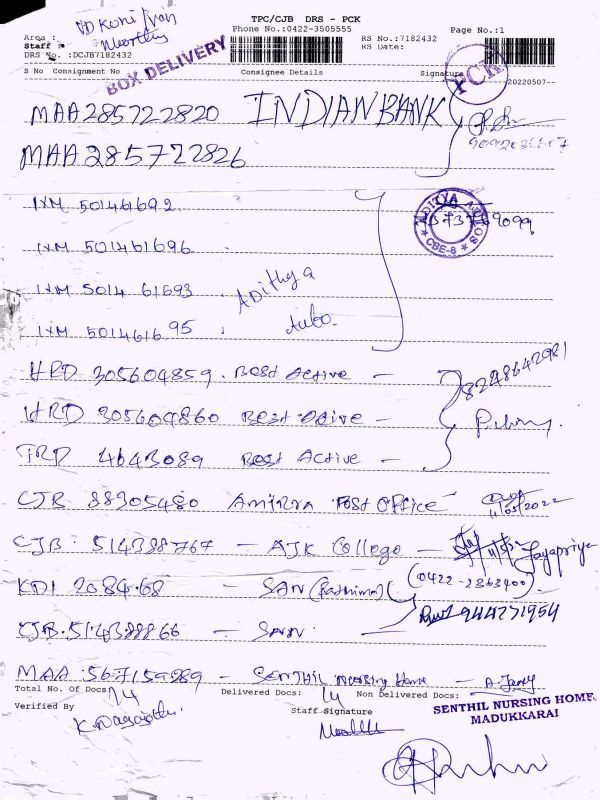 TPC/CJB DRS - PCK
Phone No.:0422-3505555
Page No.:1
Area :
Staff :
RS No.:7182432
DRS No. :DCJB7182432
RS Date:
BOX DELIVERY
S No Consignment No Consignee Details Signature
20220507-
PCK
MAA285722820 INDIAN BANK
MAA285722826
IXM 501461692
IXM 501461696
IXM 501461693 Adithya
IXM 501461695 Auto.
ADITYA AUTOS
CBE-8
HRD 305604859. Best Active - 8248642981
HRD 305604860 Best Active -
TRD 4643089 Best Active -
CJB 88305480 Amirtha Post Office 11/05/2022
CJB. 514388767 - AJK College - Jayapriya
KDI 2084.68 - SAN (0422-2868400)
CJB.514388866 - SAN 944271954
MAA 567159889 - SENTHIL Nursing Home - A. Jency
Total No. Of Docs: 14 Delivered Docs: 14 Non Delivered Docs:
Verified By Staff Signature
SENTHIL NURSING HOME,
MADUKKARAI